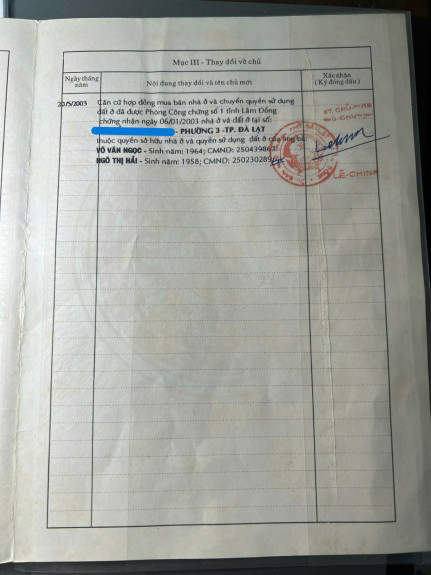 Mục III - Thay đổi về chủ
Ngày tháng năm
Nội dung thay đổi và tên chủ mới
Xác nhận
(Ký đóng dấu)
20/5/2003
Căn cứ hợp đồng mua bán nhà ở và chuyển quyền sử dụng
đất ở đã được Phòng Công chứng số 1 tỉnh Lâm Đồng
chứng nhận ngày 06/01/2003 nhà ở và đất ở tại số:
- PHƯỜNG 3 -TP. ĐÀ LẠT
thuộc quyền sở hữu nhà ở và quyền sử dụng đất ở của ông bà:
VÕ VĂN NGỌC - Sinh năm: 1964; CMND:
NGÔ THỊ HẢI - Sinh năm: 1958; CMND:
KT. CHỦ TỊCH
PHÓ CHỦ TỊCH